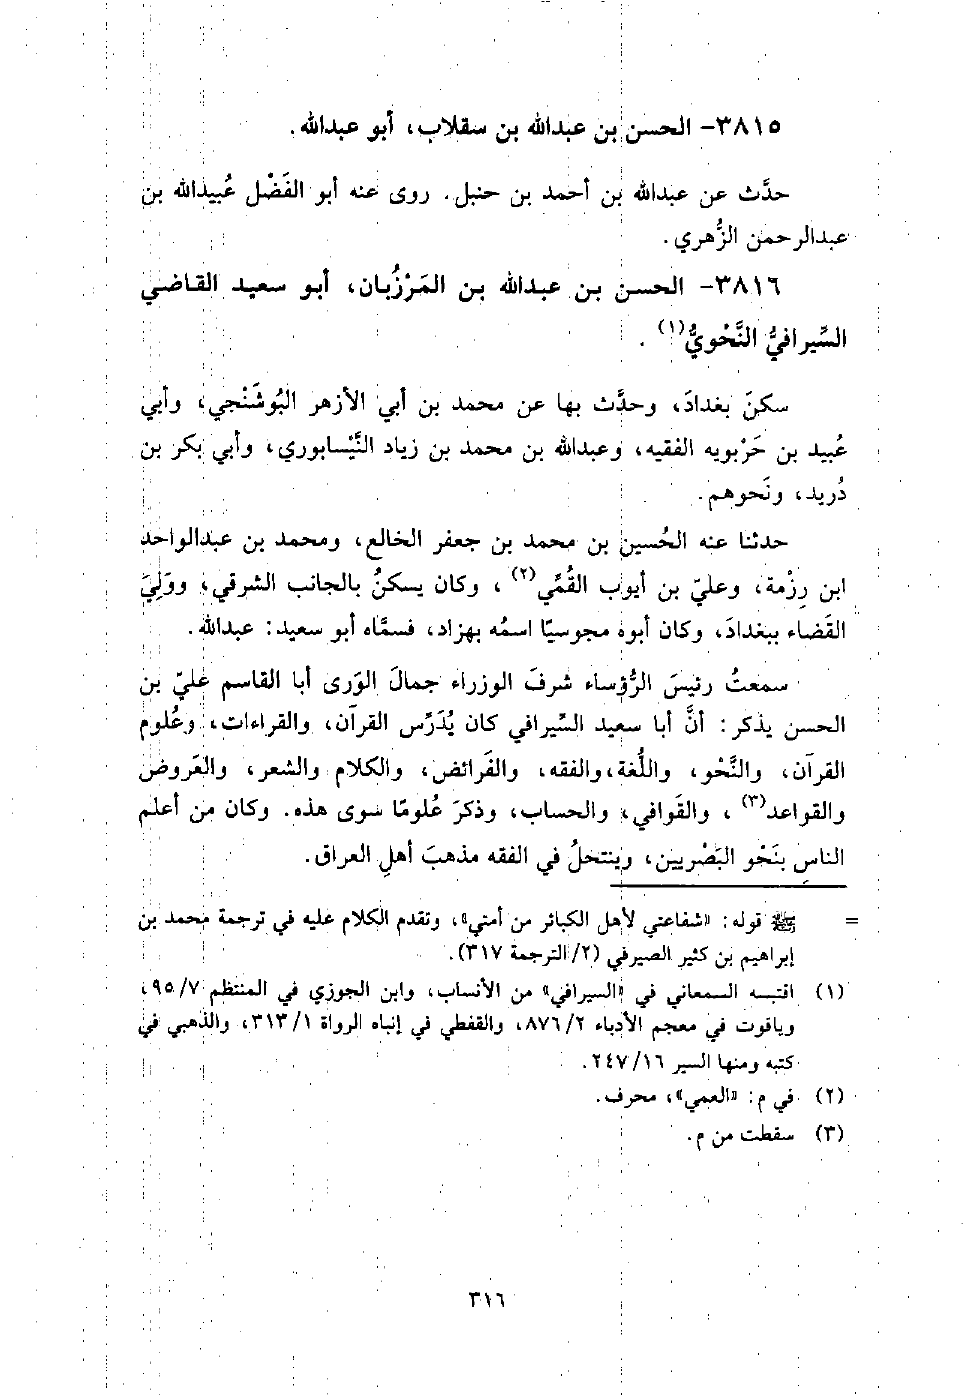 ٣٨١٥- الحسن بن عبدالله بن سقلاب، أبو عبدالله.
حدَّث عن عبدالله بن أحمد بن حنبل. روى عنه أبو الفَضْل عُبيدالله بن
عبدالرحمن الزُّهري.
٣٨١٦- الحسن بن عبدالله بن المَرْزُبان، أبو سعيد القاضي
السِّيرافيُّ النَّحْويُّ(١).
سكنَ بغدادَ، وحدَّث بها عن محمد بن أبي الأزهر البُوشَنْجي، وأبي
عُبيد بن حَرْبويه الفقيه، وعبدالله بن محمد بن زياد النَّيْسابوري، وأبي بكر بن
دُريد، ونَحوهم.
حدثنا عنه الحُسين بن محمد بن جعفر الخالع، ومحمد بن عبدالواحد
ابن رِزْمة، وعليّ بن أيوب القُمِّي(٢)، وكان يسكنُ بالجانب الشرقي، ووَلِيَ
القَضاء ببغدادَ، وكان أبوه مجوسيًا اسمُه بهزاد، فسمَّاه أبو سعيد: عبدالله.
سمعتُ رئيسَ الرُّؤساء شرفَ الوزراء جمالَ الوَرى أبا القاسم عليّ بن
الحسن يذكر: أنَّ أبا سعيد السِّيرافي كان يُدَرِّس القرآن، والقراءات، وعُلوم
القرآن، والنَّحْو، واللُّغة،والفقه، والفَرائض، والكلام والشعر، والعَروض
والقواعد(٣)، والقَوافي، والحساب، وذكرَ عُلومًا سوى هذه. وكان من أعلم
الناسِ بنَحْو البَصْريين، وينتحلُ في الفقه مذهبَ أهلِ العراق.
= ﷺ قوله: «شفاعتي لأهل الكبائر من أمتي»، وتقدم الكلام عليه في ترجمة محمد بن
إبراهيم بن كثير الصيرفي (٢/الترجمة ٣١٧).
(١) اقتبسه السمعاني في «السيرافي» من الأنساب، وابن الجوزي في المنتظم ٧/ ٩٥،
وياقوت في معجم الأدباء ٢/ ٨٧٦، والقفطي في إنباه الرواة ١/ ٣١٣، والذهبي في
كتبه ومنها السير ١٦/ ٢٤٧.
(٢) في م: «العمي»، محرف.
(٣) سقطت من م.
٣١٦